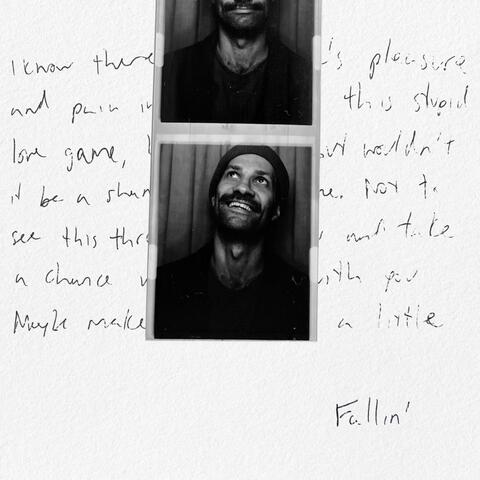 I know there 's pleasure
and pain in this stupid
love game, but wouldn't
it be a sham e. Not to
see this thro and take
a chance w with you
Maybe make a little
Fallin'